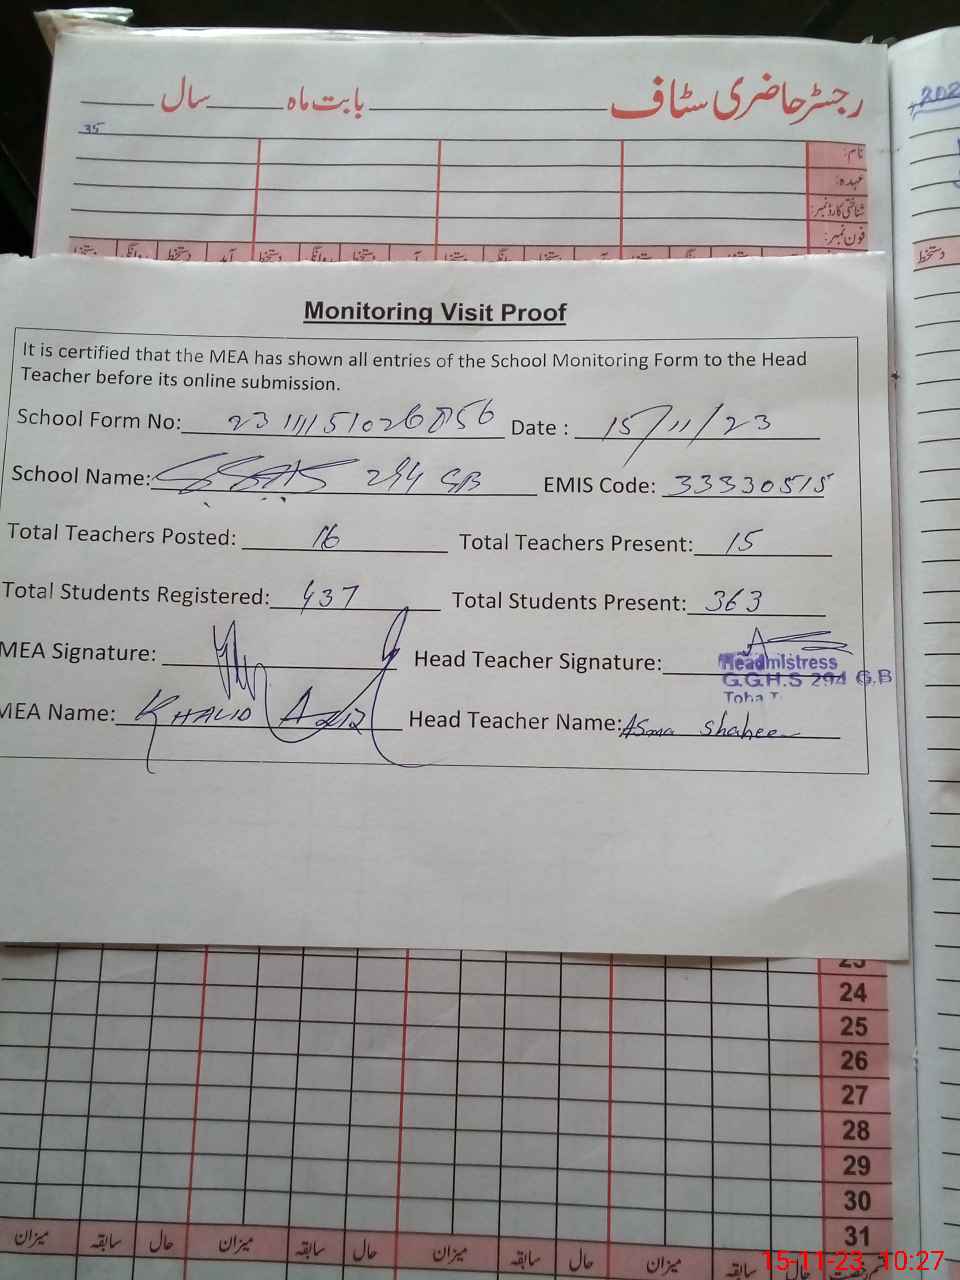 رجسٹر حاضری سٹاف ــــــ بابت ماہ ــــــ سال ــــــ
35
نام:
عہدہ:
شناختی کارڈ نمبر:
فون نمبر:
دستخط
Monitoring Visit Proof
It is certified that the MEA has shown all entries of the School Monitoring Form to the Head
Teacher before its online submission.
School Form No: Date : 15/11/23
School Name: 294 GB EMIS Code: 33330515
Total Teachers Posted: 16 Total Teachers Present: 15
Total Students Registered: 437 Total Students Present: 363
MEA Signature: Head Teacher Signature:
Headmistress
G.G.H.S 294 G.B
Toba T.
MEA Name: KHALID AZIZ Head Teacher Name: Asma Shaheen
23
24
25
26
27
28
29
30
31
میزان سابقہ حال میزان سابقہ حال میزان سابقہ حال میزان سابقہ حال
15-11-23 10:27